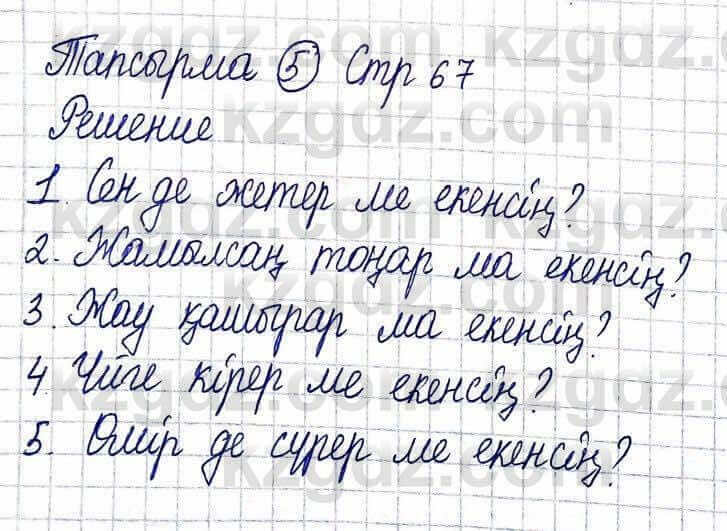 Тапсырма 5 Стр 67
Решение
1. Сен де жетер ме екенсің?
2. Жамылсаң тоңар ма екенсің?
3. Жау қашырар ма екенсің?
4. Үйге кірер ме екенсің?
5. Өмір де сүрер ме екенсің?
kzgdz.com